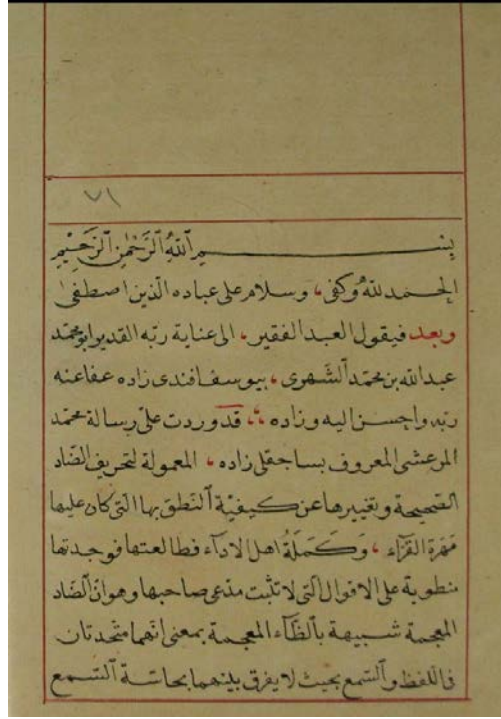 ٧١
بسم الله الرحمن الرحيم
الحمد لله وكفى، وسلام على عباده الذين اصطفى
وبعد فيقول العبد الفقير، الى عناية ربه القدير ابو محمد
عبد الله بن محمد الشهرى، بيوسف افندى زاده عفا عنه
ربه واحسن اليه وزاده،، قد وردت علىّ رسالة محمد
المرعشى المعروف بساجقلى زاده، المعمولة لتحريف الضاد
الصحيحة وتغييرها عن كيفيّة النّطق بها الّتى كان عليها
مَهَرة القرّاء، وَكَمَلَةُ اهل الاداء فطالعتها فوجدتها
منطوية على الاقوال الّتى لا تثبت مدّعى صاحبها وهو انّ الضّاد
المعجمة شبيهة بالظّاء المعجمة بمعنى انّهما متّحدتان
فى اللفظ والسّمع بحيث لا يفرق بينهما بحاسّة السّمع